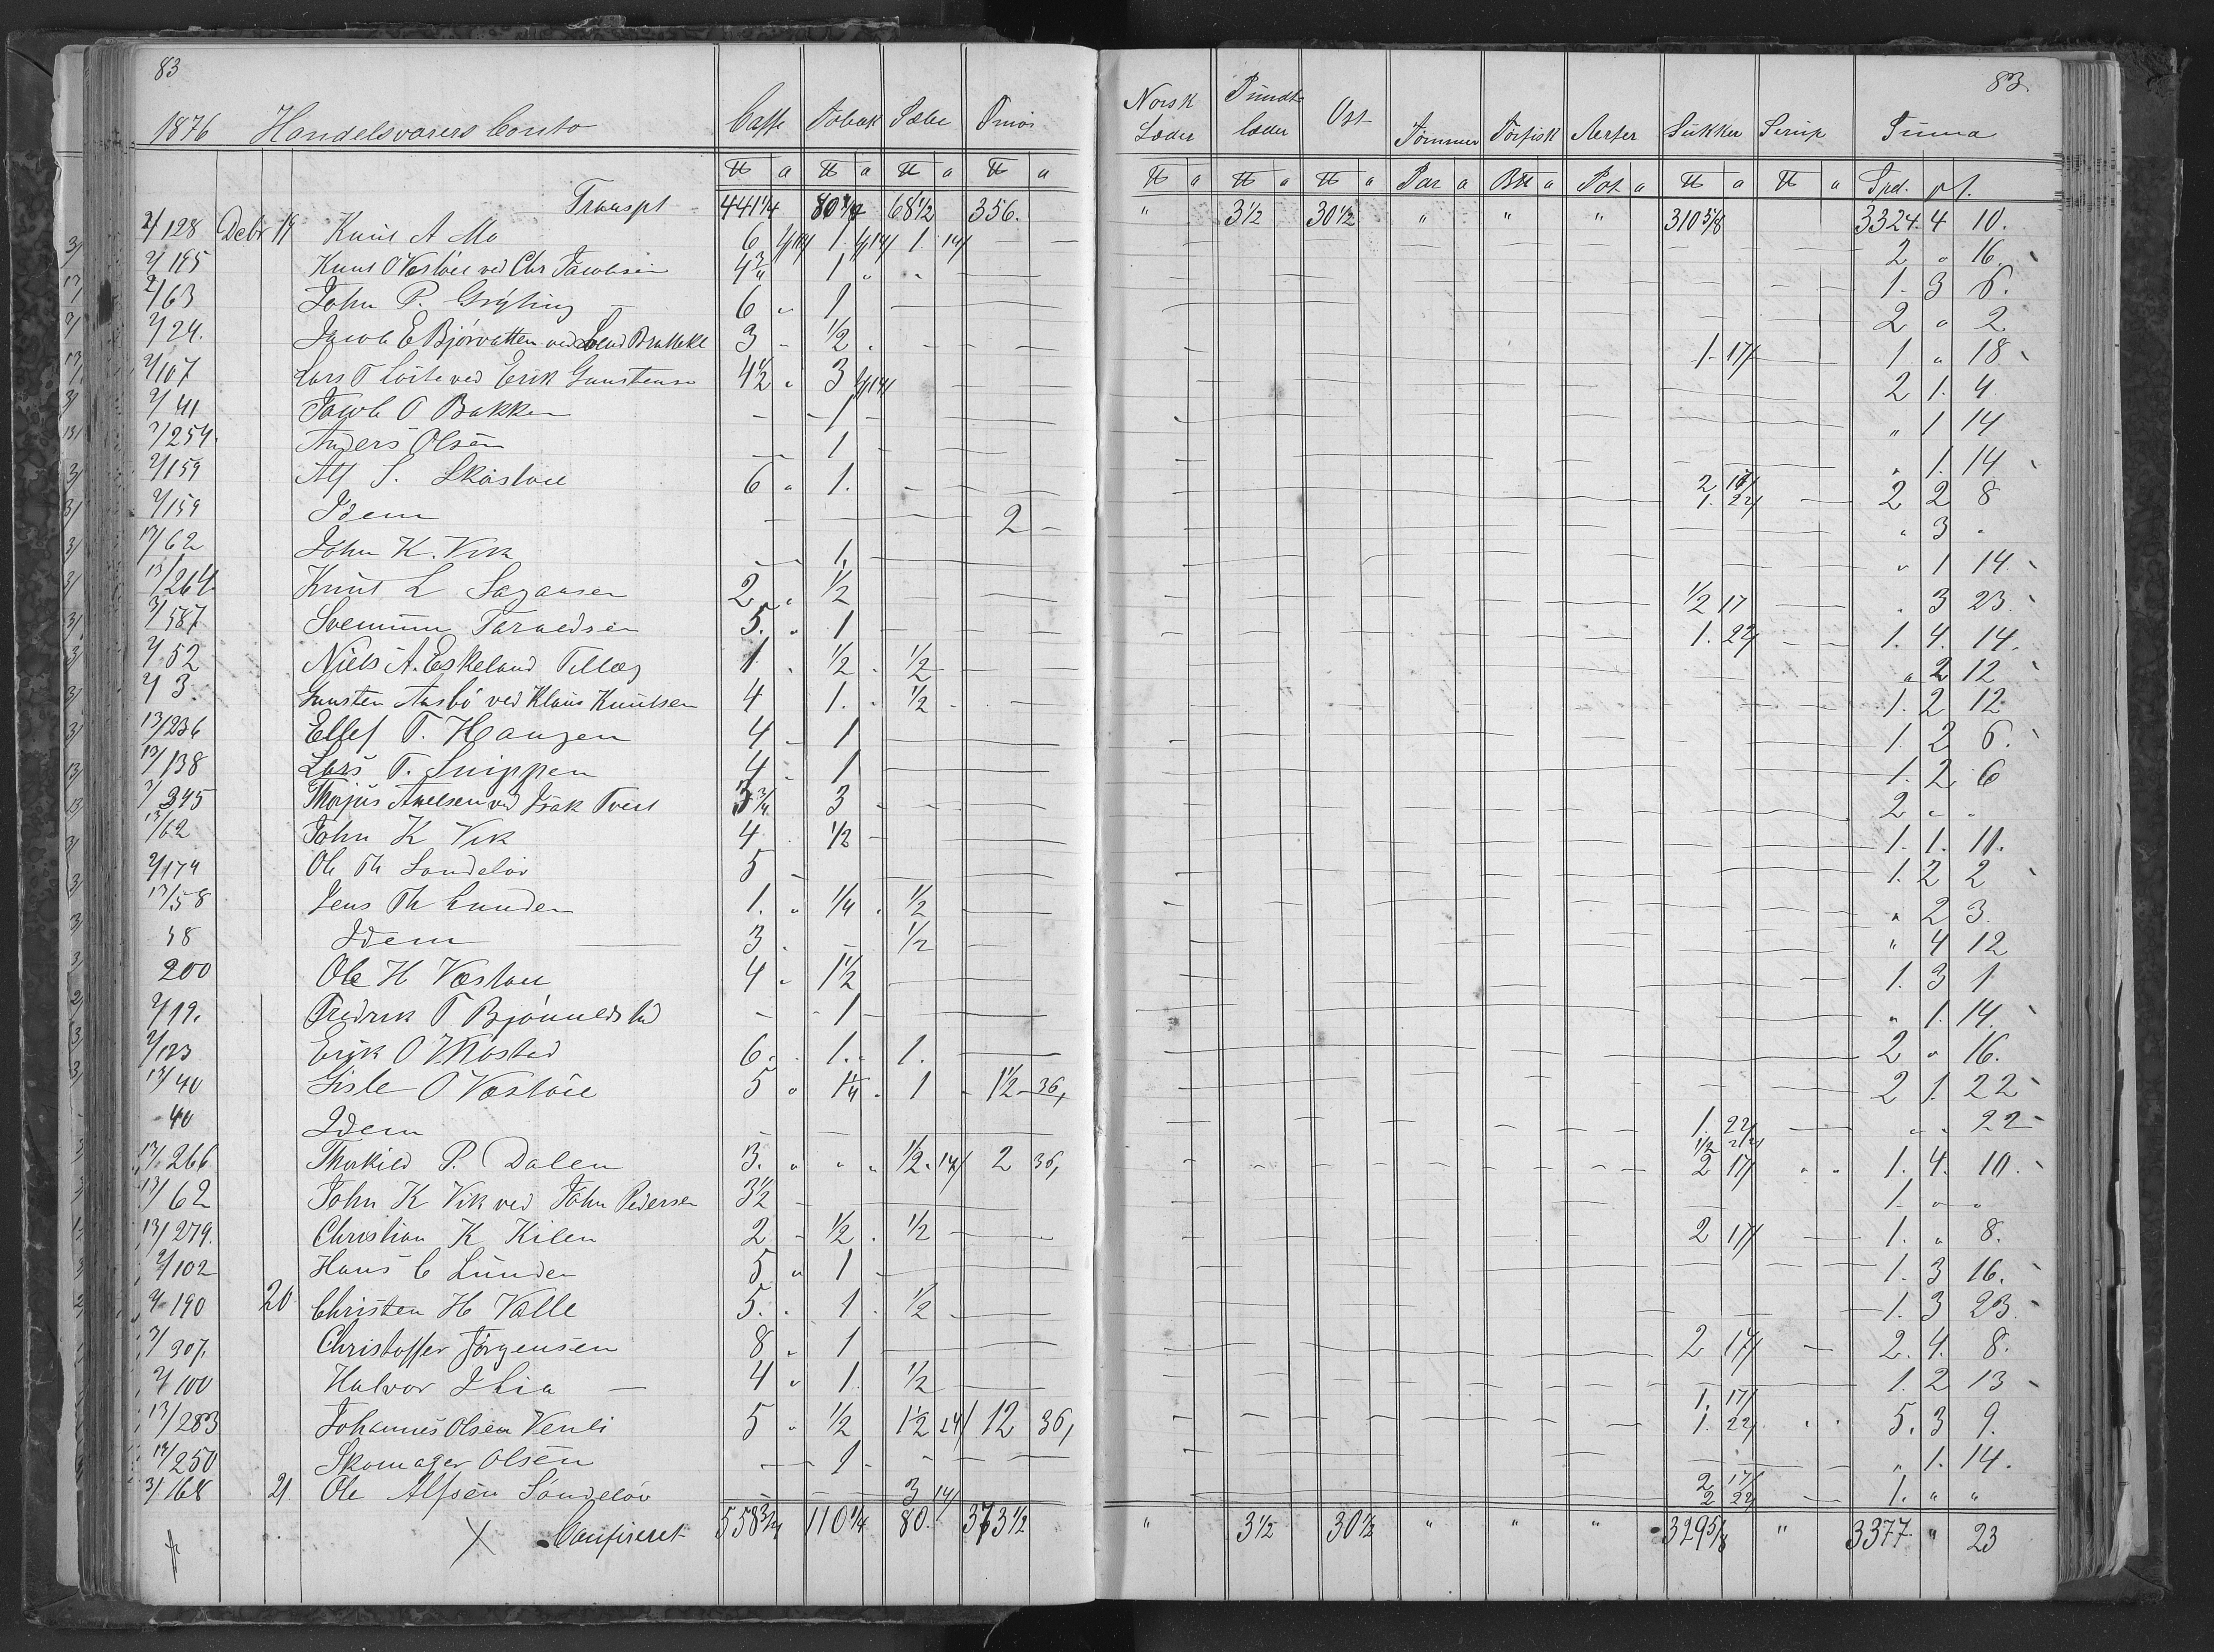 83 83
1876 Handelsvarers Conto Caffe Tobak Sæbe Norsk Læder Pundt læder Ost Tømmer Tørfisk Aerter Sukker Sirup Summa
℔ a ℔ a ℔ a ℔ a ℔ a ℔ a ℔ a Par a a Pot a ℔ a ℔ a Spd.
Transpt 441 1/4 68 1/2 356. " 3 1/2 30 1/2 " " " 310 5/8 3324. 4 10.
2/128 Debr 19 Knut A Mo 6 1 1 14/ — — 2 " 16.
2/195 Knut O Vaslöie ved Chr Jacobsen 1 " — 1. 3 6.
2/63 John P. 6 " 1 — — 2 " 2
2/24. Jacob E Bjørvatten ved 3 - 1/2 . — — 1 17/ — 1. " 18
2/107 Lars T ved Erik Gunstensen 4 1/2 " 3 — 2 1. 4
2/41 Jacob O Bakken — — 1 — — " 1 14
3/254. Anders Olsen — 1 — — " 1. 14
2/159 Alf S. 6 " 1. — — — 2 17/ 1. 22/ — 2 2 8
2/159 Idem — — — 2 — " 3 "
13/62 John K. Vik — — 1. — — " 1 14
13/264 Knut L Sagansen 2 " 1/2 — — — 1/2 17 — " 3 23
3/587 Svennum Taraldsen 5. " 1 — — — 1. 22/ — 1. 4. 14.
2/52 Niels A. Eskeland Tillæg 1 . 1/2 . 1/2 — — " 2 12
2/3. Gunsten Aasbö ved Klaus Knutsen 4 . 1. . 1/2 . — 1. 2 12
13/236 Ellef T. Haugen 4 - 1 — — 1. 2 6.
13/138 Lars T. Snippen 4 - 1 — — 1. 2 6
3/345 Thorjus Axelsen ved Isak Tveit 3 3/4 3 — — 2 " "
13/62 John K Vik 4 . 1/2 — — 1. 1. 11.
2/174 Ole Th Sandelöv 5 — — 1. 2 2
13/58 Jens Th Lunden 1. " 1/4 . 1/2 — — " 2 3.
58 Idem — 3. — 1/2 — " 4 12
200 Ole H Vaslöie 4 " 1 1/2 — — 1. 3 1
2/19. Fredrik T — — 1 — — " 1. 14.
2/123 Erik O Mostad 6. . 1. . 1. — 2 " 16.
13/40 Gisle O Vaslöie 5 " 1 1/4 . 1 — 1 1/2 — 36, 2 1. 22
40 Idem — — — 1. 22/ — " " 22
13/266 Thorkild P. Dalen 3. " " " 1/2. 14/ 2 36, 1/2 2 17/ " " 1. 4. 10.
13/62 John K Vik ved John Pedersen 3 1/2 — 1. " "
13/279. Christian K Kilen 2 - 1/2 . 1/2 — — 2 17/ — 1. " 8.
2/102 Hans C Lunden 5 " 1 — — 1. 3 16.
2/190 20 Christen H Valle 5. . 1 . 1/2 — — 1. 3 23.
3/307. Christoffer Jörgensen 8 . 1 — — 2 17/ — 2. 4. 8.
2/100 Halvor J Lia — 4 " 1. 1/2 — — 1. 2 13
13/283 Johannes Olsen Venli 5 " 1/2 1 1/2 14/ 12 36, 1. 17/ 1. 22/ . . 5. 3 9.
13/250 Skomager Olsen — — 1 — — — " 1. 14.
3/168 21 Ole Alfsen Sandelöv — — — 3 14/ 2 17/ 2 22/ — 1. " "
X 558 3/4 110 1/4 80. 373 1/2 " 3 1/2 30 1/2 " " " 329 5/8 " 3377. " 23